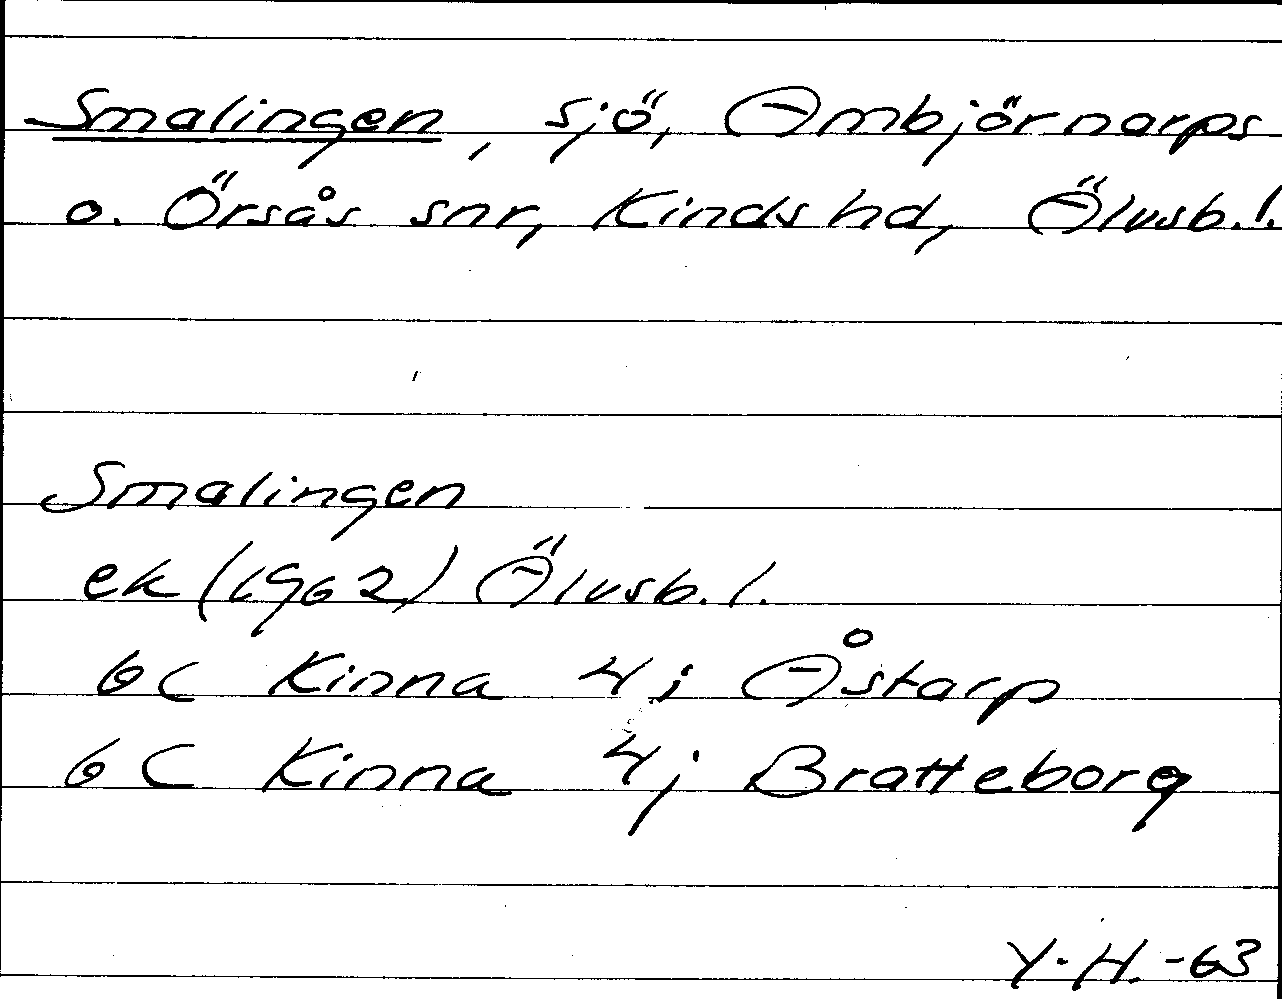 Smalingen, sjö, Ambjörnarps
o. Örsås snr, Kinds hd, Älvsb. l.
Smalingen
ek (1962) Älvsb. l.
6C Kinna 4i Åstarp
6C Kinna 4j Bratteborg
Y.H. -63